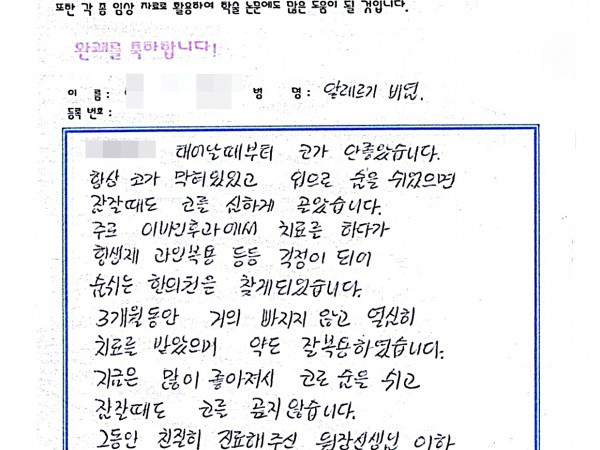 또한 각 종 임상 자료로 활용하여 학술 논문에도 많은 도움이 될 것입니다.
완쾌를 축하합니다!
이 름 : 병 명 : 알레르기 비염.
등록 번호 :
태어날때부터 코가 안좋았습니다.
항상 코가 막혀있었고 입으로 숨을 쉬었으면
잠잘때도 코를 심하게 골았습니다.
주로 이비인후과에서 치료를 하다가
항생제 과잉복용 등등 걱정이 되어
숨쉬는 한의원을 찾게되었습니다.
3개월동안 거의 빠지지 않고 열심히
치료를 받았으며 약도 잘복용하였습니다.
지금은 많이 좋아져서 코로 숨을 쉬고
잠잘때도 코를 골지않습니다.
그동안 친절히 진료해주신 원장선생님 이하